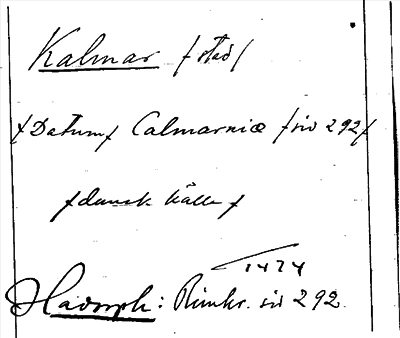 Kalmar /stad/
/Datum/ Calmarniæ /sid 292/
/dansk källa/
1474
Hadorph: Rimkr. sid 292.